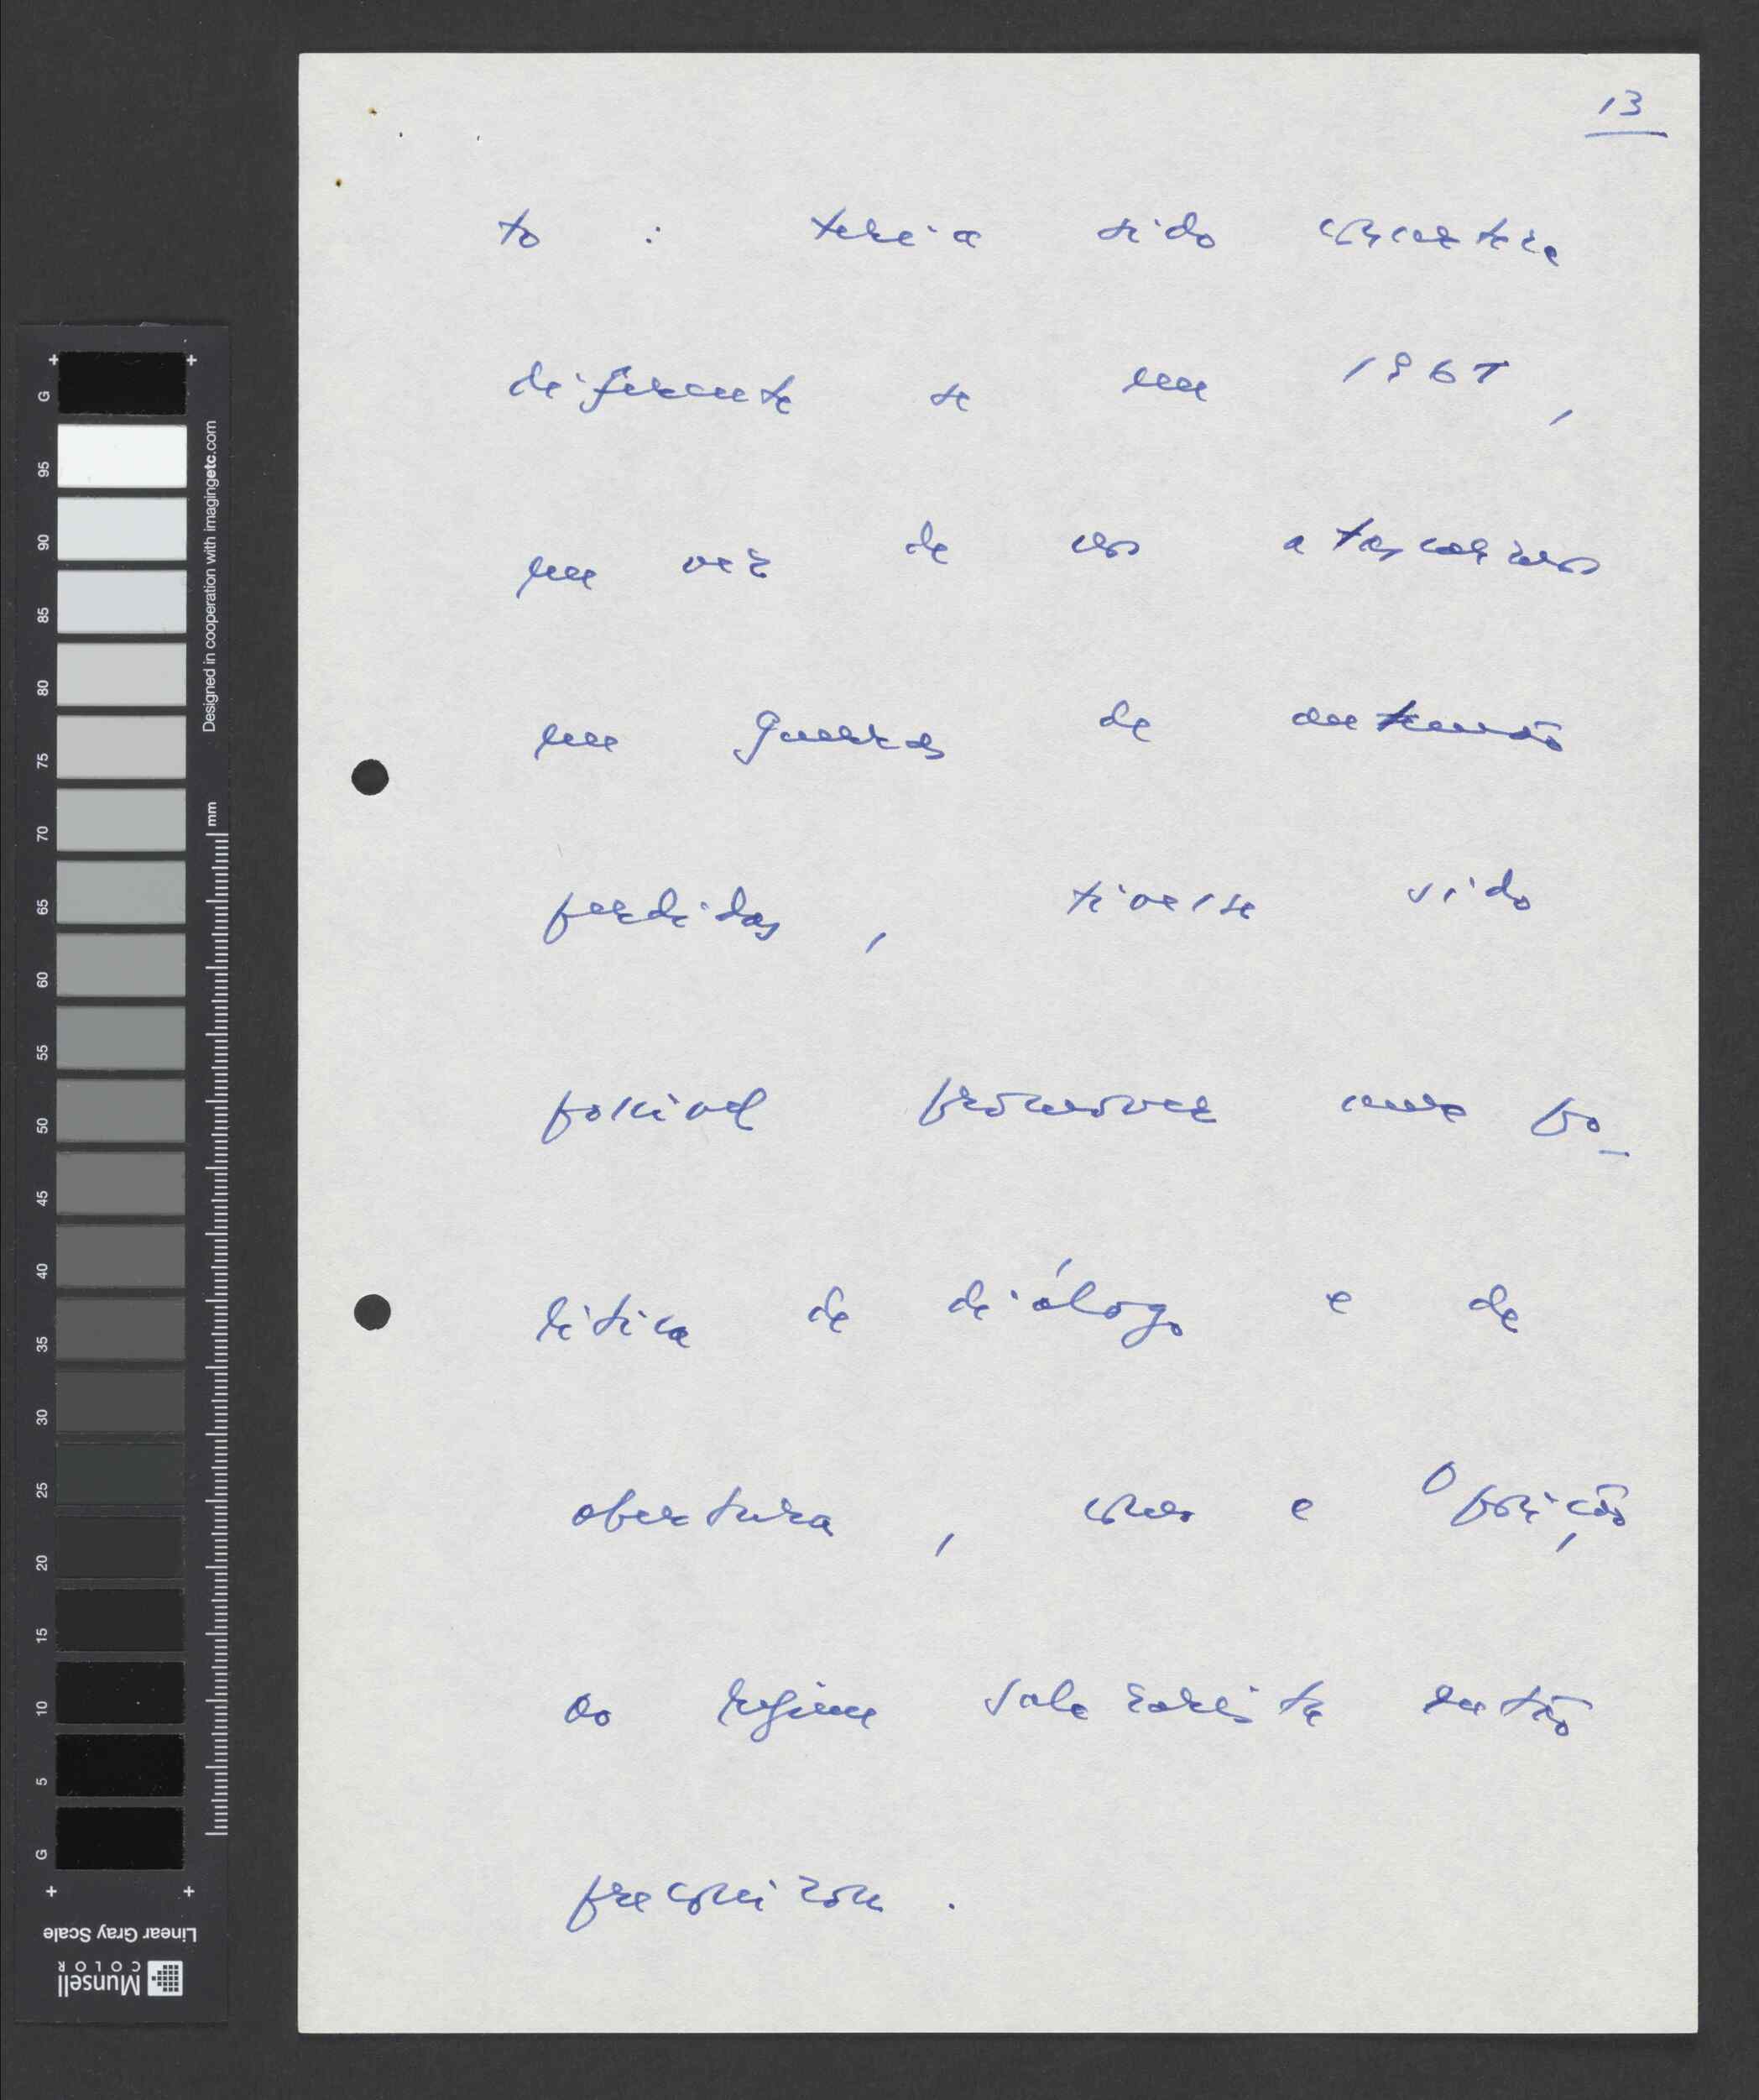 13
to : teria sido concerteza
diferente se em 1961,
em vez de nos atascarmos
em guerras de antemão
perdidas, tivesse sido
possivel promover uma po-
litica de diálogo e de
abertura, como a Oposição
ao regime salazarista então
preconizou.
G 95 90 85 80 75 70 65 60 55 50 45 40 35 30 25 20 15 10 5 G
Designed in cooperation with imagingetc.com
mm
Linear Gray Scale
Munsell
COLOR